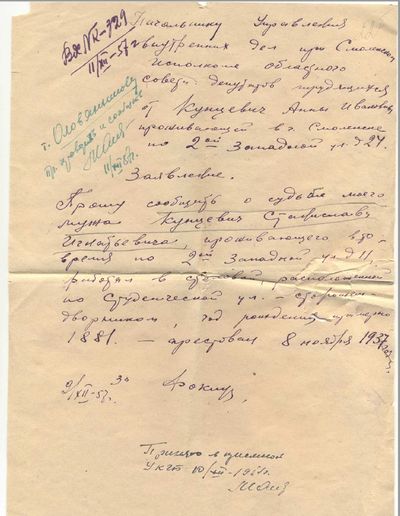 Вх № К-329
11/XII-57 г
Начальнику Управления
внутренних дел при Смоленском
Исполкоме областного
совета депутатов трудящихся
от Кунцевич Анны Ивановны
проживающей в г. Смоленске
по 2ой Западной ул д 27.
т.
пр. проверить и сообщить
11/XII 57г.
Заявление.
Прошу сообщить о судьбе моего
мужа Кунцевич Станислава
Игнатьевича, проживающего в то
время по 2ой Западной ул д 11,
работал в столовой, расположенной
по Студенческой ул. – сторожем
дворником, год рождения примерно
1881. – арестован 8 ноября 1937 года.
9/XII-57г.
Принято в приемной
УКГБ 10/XII-1957г.